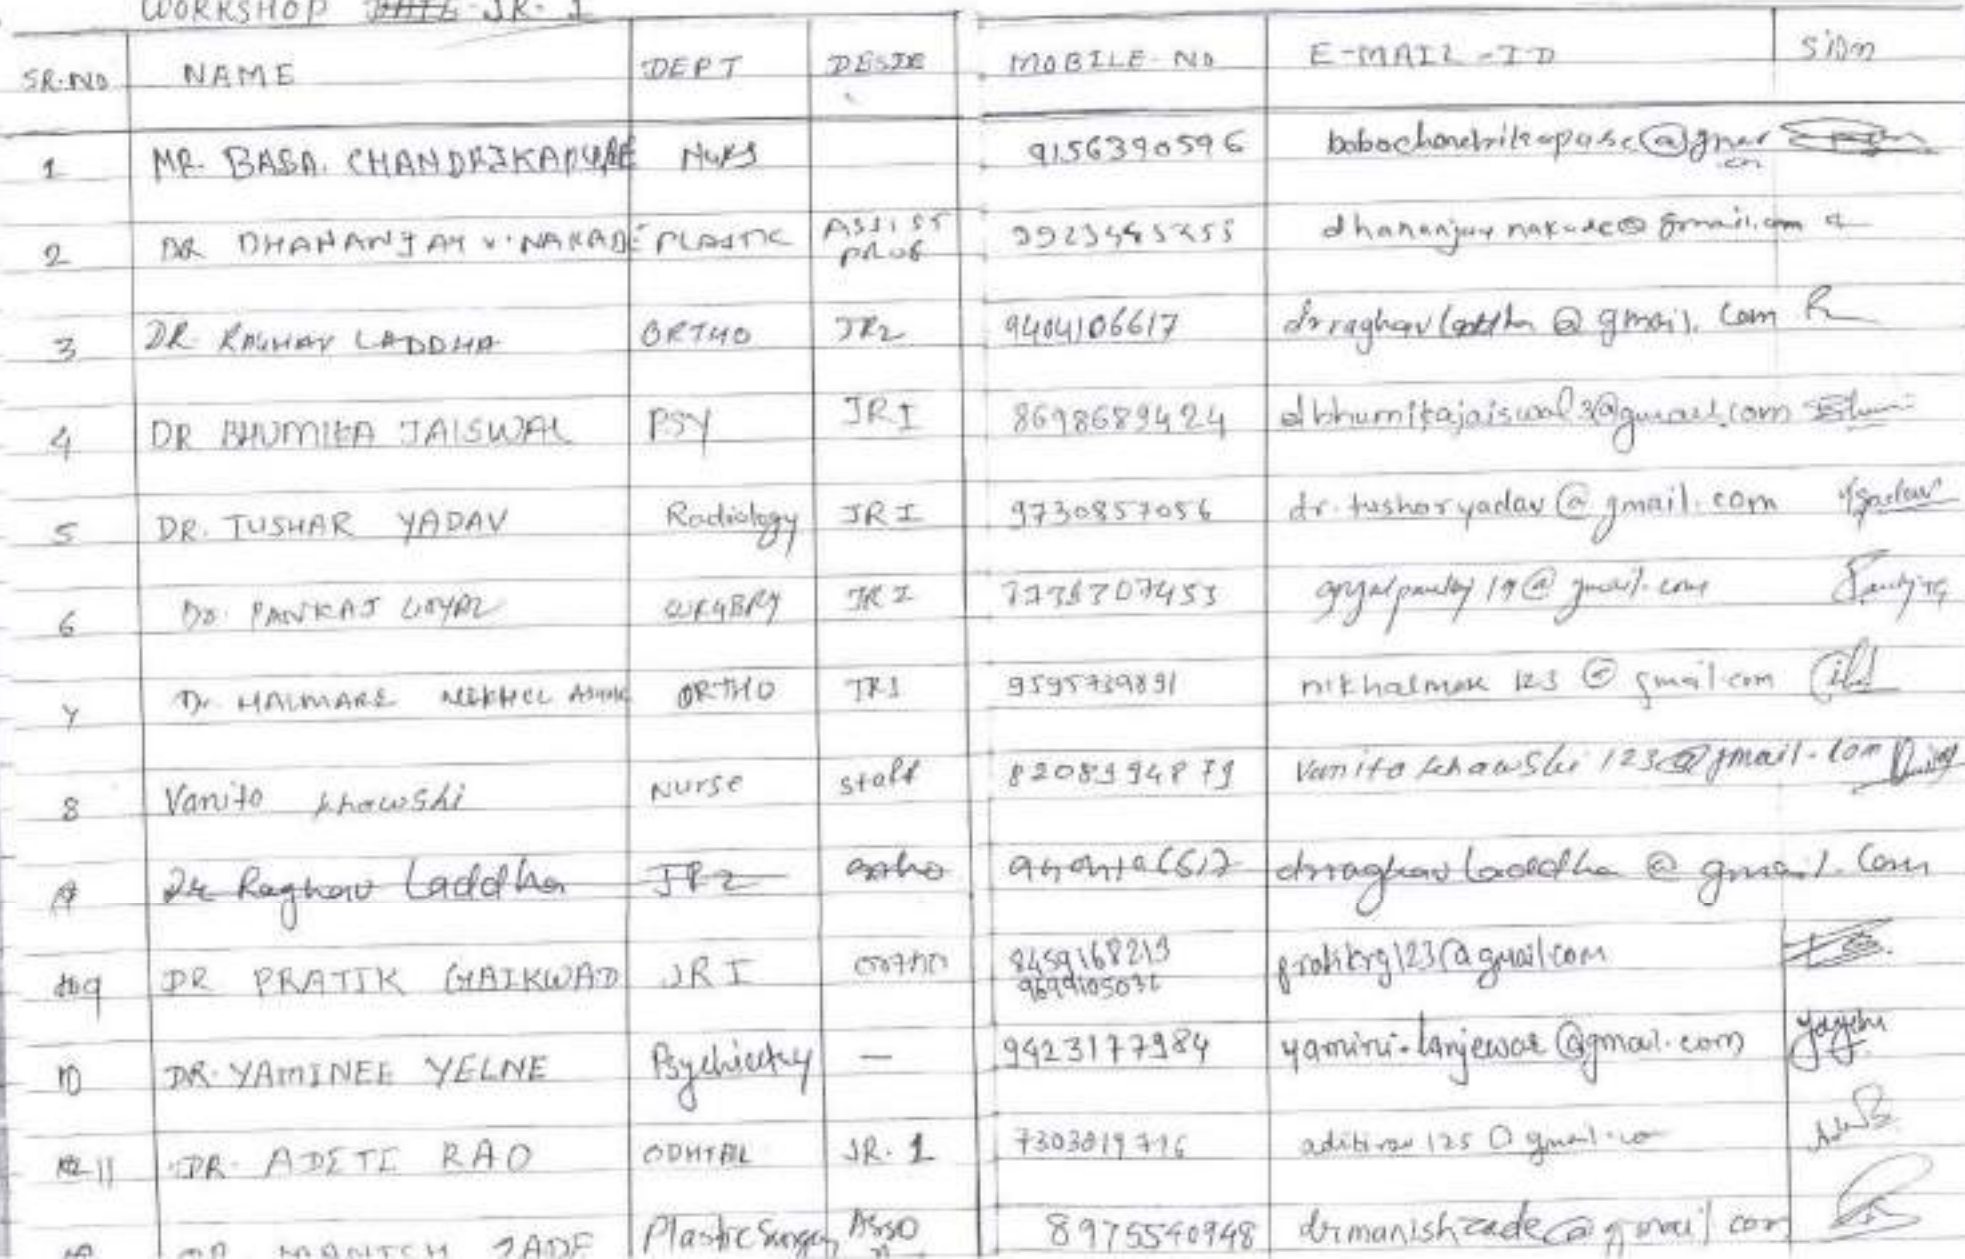 WORKSHOP JR. I
SR.NO NAME DEPT DESIE MOBILE NO E-MAIL-ID SIGN
1 MR. BABA. CHANDRIKAPURE NURS 9156390596
2 DR DHANANJAY V. NAKADE PLASTIC ASSIST PROF dhananjaynakade@gmail.com
3 DR RAGHAV LADDHA ORTHO JR2 9404106617 drraghavladdha@gmail.com
4 DR BHUMIKA JAISWAL PSY JR I 8698689424 dbhumikajaiswal3@gmail.com
5 DR. TUSHAR YADAV Radiology JR I 9730857056 dr.tusharyadav@gmail.com
6 Dr. PANKAJ GOYAL JR I
7 Dr. HALMARE NIKHIL ORTHO JR1 9595739891
8 Vanita khawshi Nurse staff 8208994879 Vanita khawshi 123@gmail.com
Dr Raghav Laddha JR2 ortho 9404106617 drraghavladdha@gmail.com
9 DR PRATIK GAIKWAD JR I ORTHO 8459168213 pratikrg123@gmail.com
10 DR. YAMINEE YELNE Psychiatry — 9423177984 yamini.lanjewar@gmail.com
11 DR. ADITI RAO JR. 1 aditirao125@gmail.co
DR MANISH ZADE Plastic Surgery Asso 8975540948 drmanishzade@gmail.com